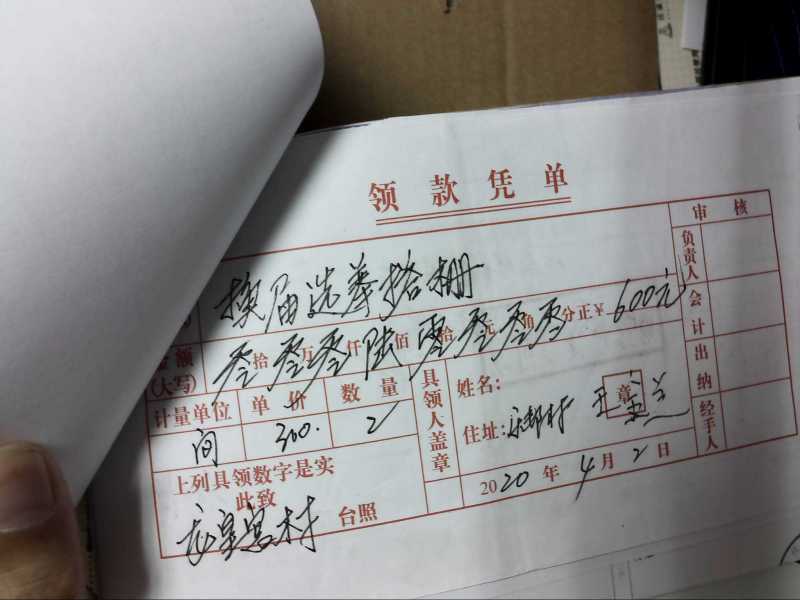 领款凭单
审核
换届选举搭棚
负责人
金额(大写) 零拾零万零仟陆佰零拾零元零角零分正¥600元
会计
计量单位 单价 数量
间 300. 2
具领人盖章
姓名:
章
住址:
出纳
经手人
上列具领数字是实
此致
龙皇宫村 台照
2020年4月2日